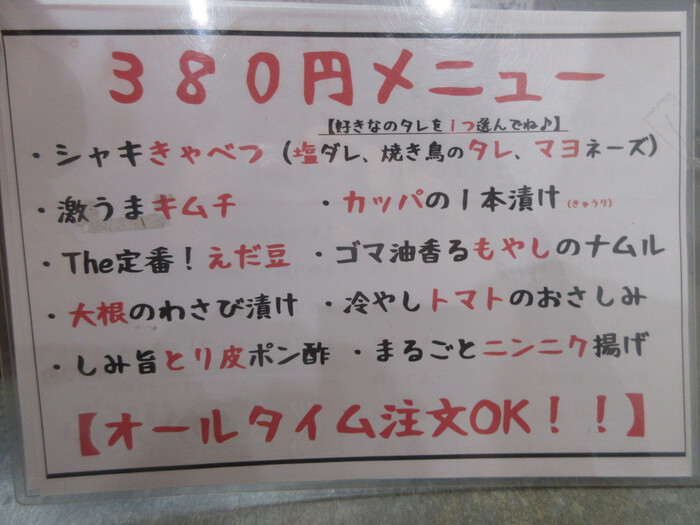 ３８０円メニュー
【好きなのタレを１つ選んでね♪】
・シャキきゃべつ（塩ダレ、焼き鳥のタレ、マヨネーズ）
・激うまキムチ ・カッパの１本漬け（きゅうり）
・The定番！えだ豆 ・ゴマ油香るもやしのナムル
・大根のわさび漬け ・冷やしトマトのおさしみ
・しみ旨とり皮ポン酢 ・まるごとニンニク揚げ
【オールタイム注文OK！！】